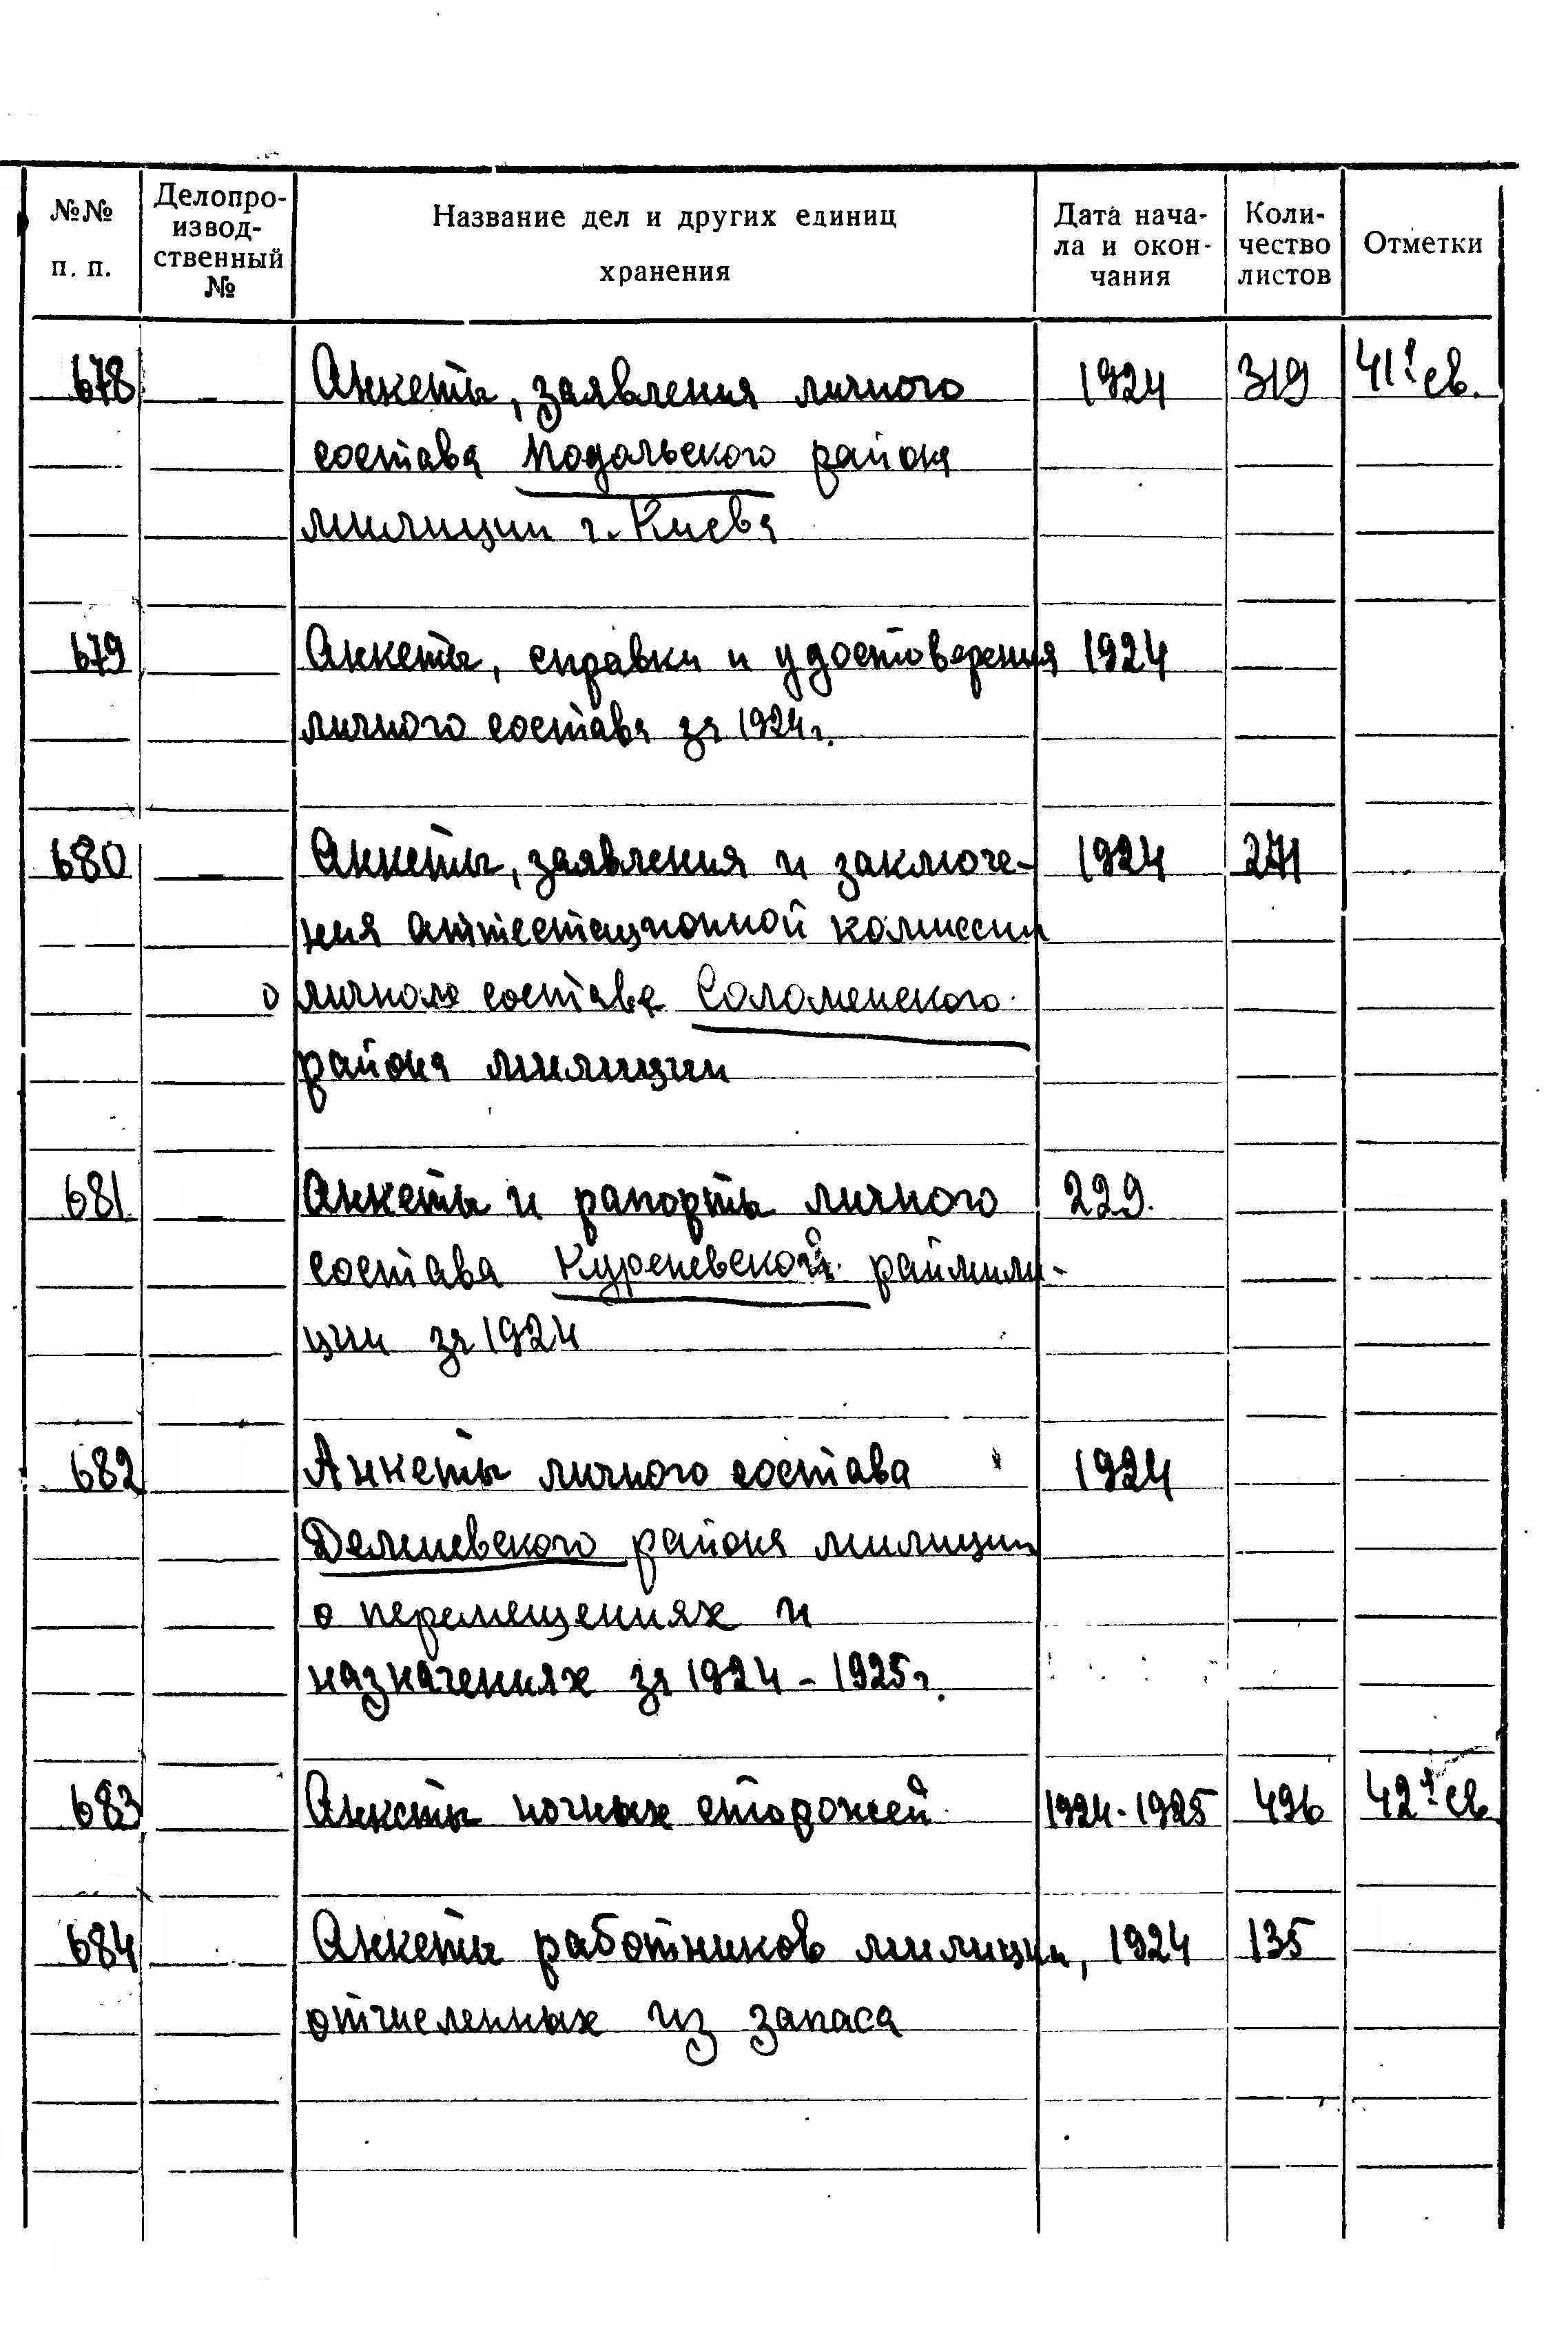 №№ п. п. Делопро-извод-ственный № Название дел и других единиц хранения Дата нача-ла и окон-чания Коли-чество листов Отметки
678 – Анкеты, заявления личного 1924 319 41я св.
состава Подольского района
милиции г. Киева
679 Анкеты, справки и удостоверения 1924
личного состава за 1924г.
680 – Анкеты, заявления и заключе- 1924 271
ния аттестационной комиссии
о личном составе Соломенского
района милиции
681 – Анкеты и рапорты личного 229.
состава Куреневской раймили-
ции за 1924
682 Анкеты личного состава 1924
Демиевского района милиции
о перемещениях и
назначениях за 1924 – 1925г.
683 Анкеты ночных сторожей 1924-1925 496 42я св.
684 Анкеты работников милиции, 1924 135
отчисленных из запаса